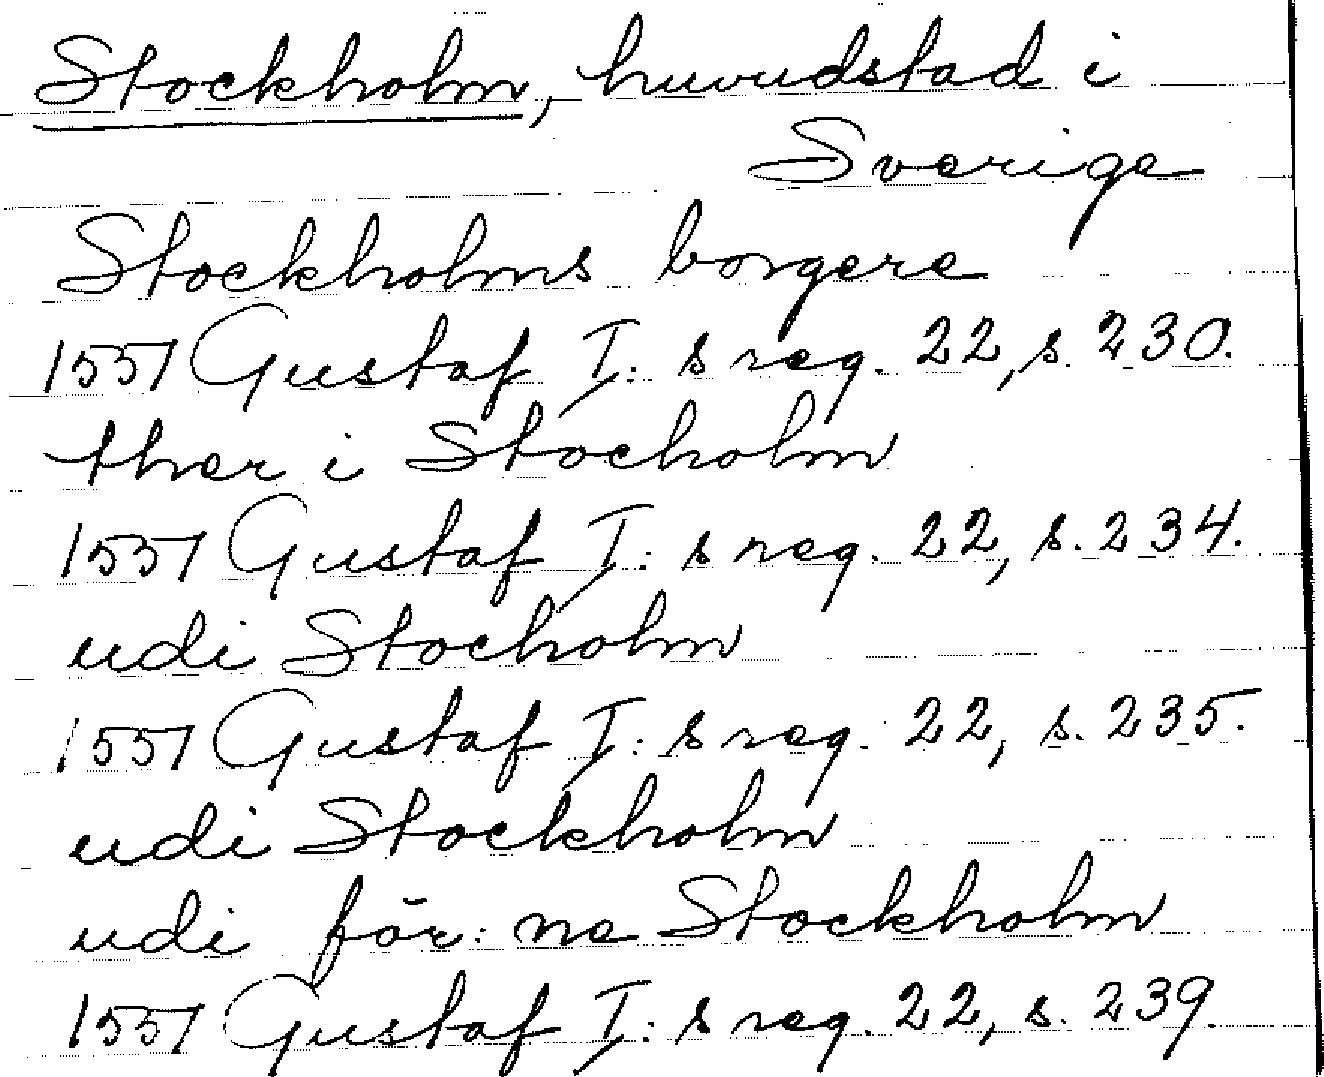 Stockholm, huvudstad i
Sverige
Stockholms borgere
1551 Gustaf I:s reg. 22, s. 230.
ther i Stocholm
1551 Gustaf I:s reg. 22, s. 234.
udi Stocholm
1551 Gustaf I:s reg. 22, s. 235.
udi Stockholm
udi för:ne Stockholm
1551 Gustaf I:s reg. 22, s. 239.